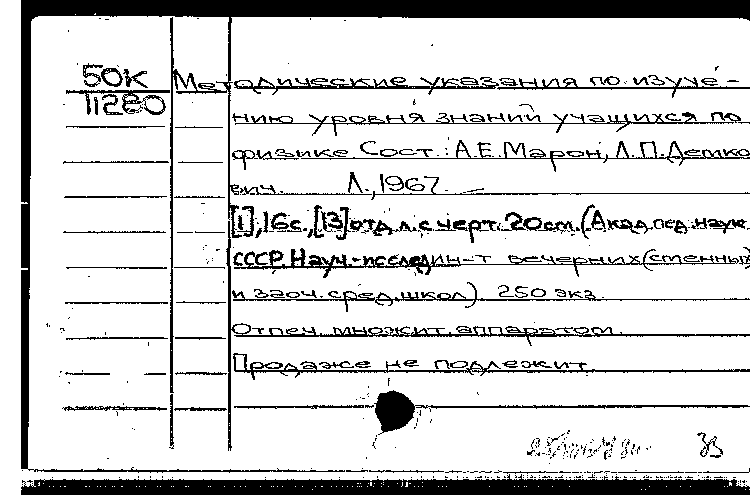 50К Методические указания по изуче-
11280
нию уровня знаний учащихся по
физике Сост.: А.Е.Марон, Л.П.Демко
вич. Л., 1967.
[1], 16с., [13] отд. л. с черт. 20см. (Акад. пед. наук
СССР. Науч.-исслед ин-т вечерних (сменных)
и заоч. сред. школ). 250 экз.
Отпеч. множит. аппаратом.
Продаже не подлежит